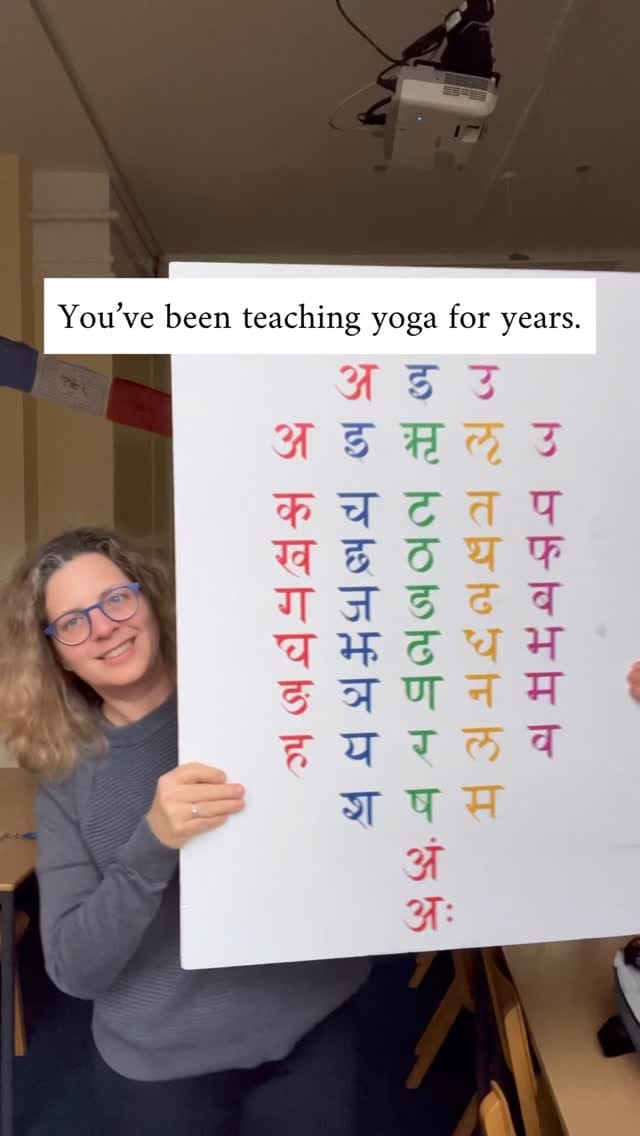 You’ve been teaching yoga for years.
अ इ उ
अ इ ऋ ऌ उ
क च ट त प
ख छ ठ थ फ
ग ज ड द ब
घ झ ढ ध भ
ङ ञ ण न म
ह य र ल व
श ष स
अं
अः